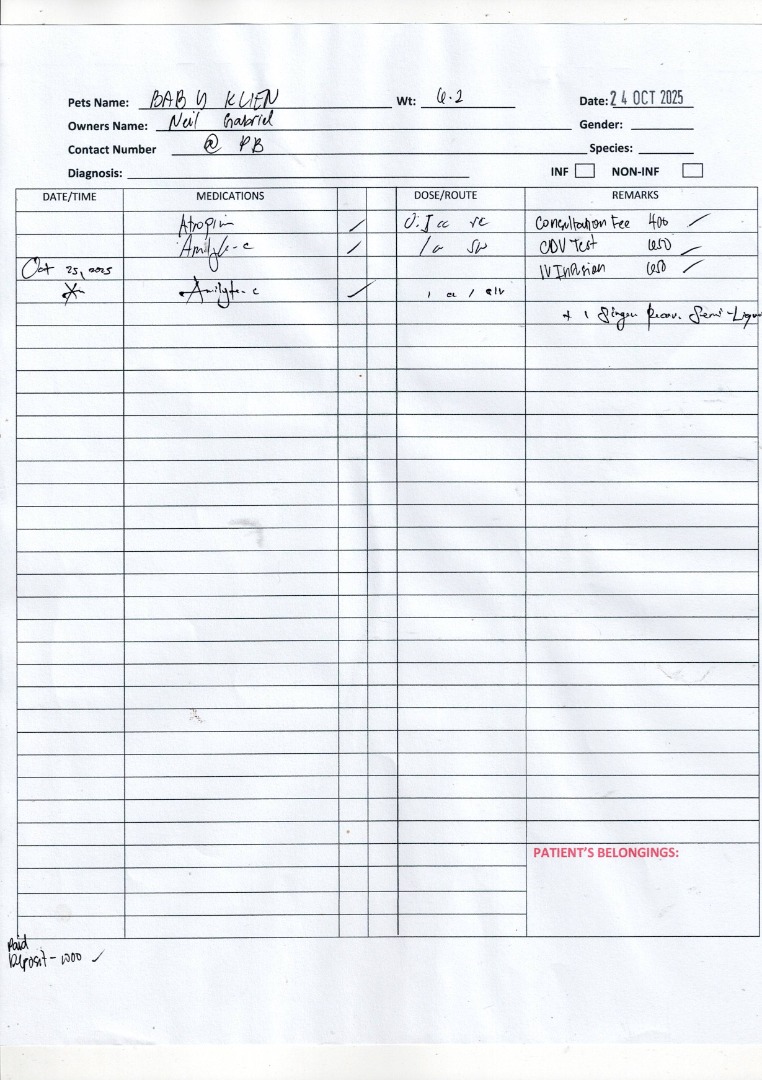 Pets Name: BABY KLIEN Wt: 6.2 Date: 24 OCT 2025
Owners Name: Neil Gabriel Gender:
Contact Number @ PB Species:
Diagnosis: INF NON-INF
DATE/TIME MEDICATIONS DOSE/ROUTE REMARKS
Atropin cc Consultation Fee 400
Amilyte-c 1 CDV Test 650
Oct 25, 2025 IV Infusion 650
Amilyte-c 1 cc
+ 1 Recov. Semi-Liqu
PATIENT'S BELONGINGS:
Paid
Deposit - 1000